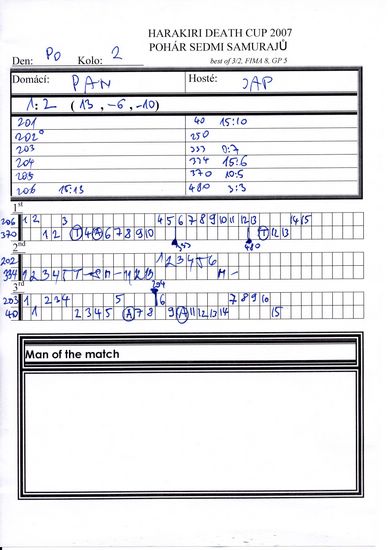 HARAKIRI DEATH CUP 2007
POHÁR SEDMI SAMURAJŮ
Den: PO Kolo: 2 best of 3/2, FIMA 8, GP 5
Domácí: PAN Hosté: JAP
1:2 (13, -6, -10)
201 40 15:10
202° 250
203 333 0:7
204 334 15:6
205 370 10:5
206 15:13 480 3:3
1st
206 1 2 3 4 5 6 7 8 9 10 11 12 13 14 15
370 1 2 T 4 A 6 7 8 9 10 T 12 13
480
2nd
202 1 2 3 4 5 6
334
204
3rd
203 1 2 3 4 5 6 7 8 9 10
40 1 2 3 4 5 A 7 8 9 A 11 12 13 14 15
Man of the match